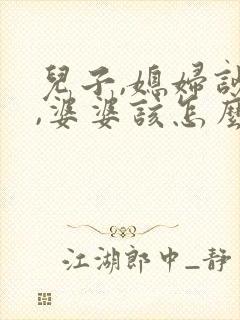 兒子,媳婦
,婆婆該怎麼
江湖郎中_靜